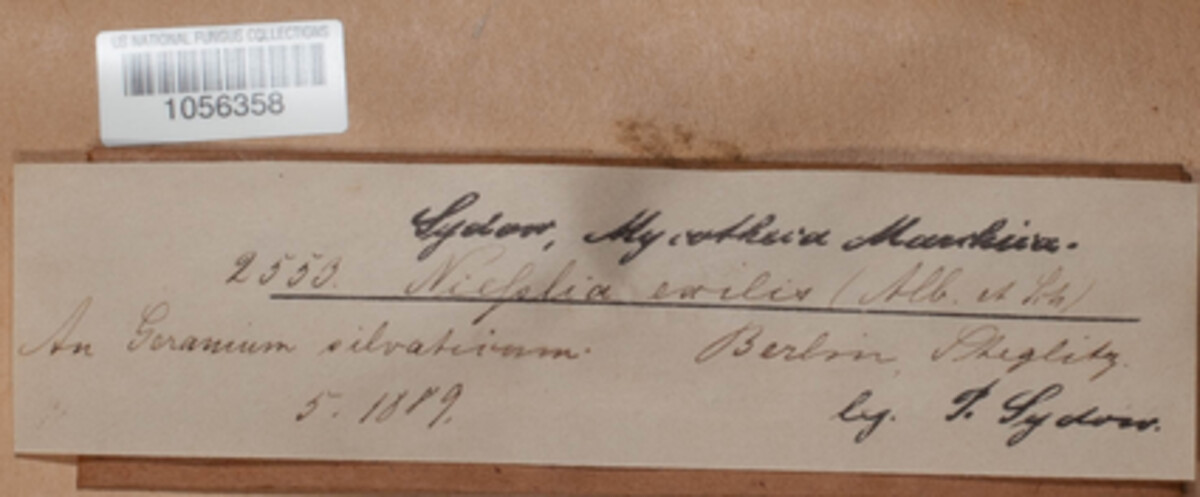 US NATIONAL FUNGUS COLLECTIONS
1056358
Sydow, Mycotheca Marchica.
2553. Niesslia exilis (Alb. et Sch)
An Geranium silvaticum. Berlin, Steglitz.
5. 1889. leg. P. Sydow.